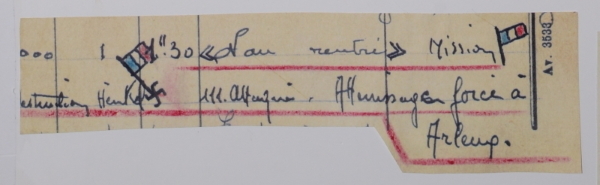 000 1 1h.30 « Non rentré » Mission
destruction Heinkel 111. Attaqué. Atterrissage forcé à
Arleux.
Av. 3533